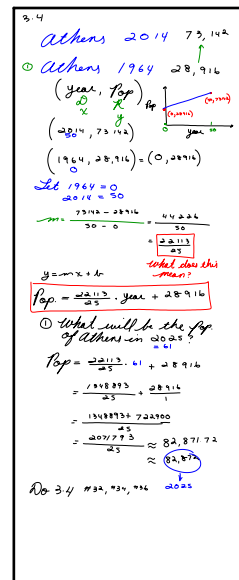 3.4
Athens 2014 73,142
① Athens 1964 28,916
(year, Pop)
D R
x y
(2014, 73142)
50
(1964, 28,916) = (0, 28916)
0
Pop
(50, 73142)
(0, 28916)
0 year 50
Let 1964 = 0
2014 = 50
m = 73142 - 28916 / 50 - 0 = 44226 / 50
= 22113 / 25
What does this mean?
y = mx + b
Pop. = 22113 / 25 · year + 28916
① What will be the Pop.
of Athens in 2025?
= 61
Pop = 22113 / 25 · 61 + 28916
= 1348893 / 25 + 28916 / 1
= 1348893 + 722900 / 25
= 2071793 / 25 ≈ 82,871.72
≈ 82,872
2025
Do 3.4 #32, #34, #36